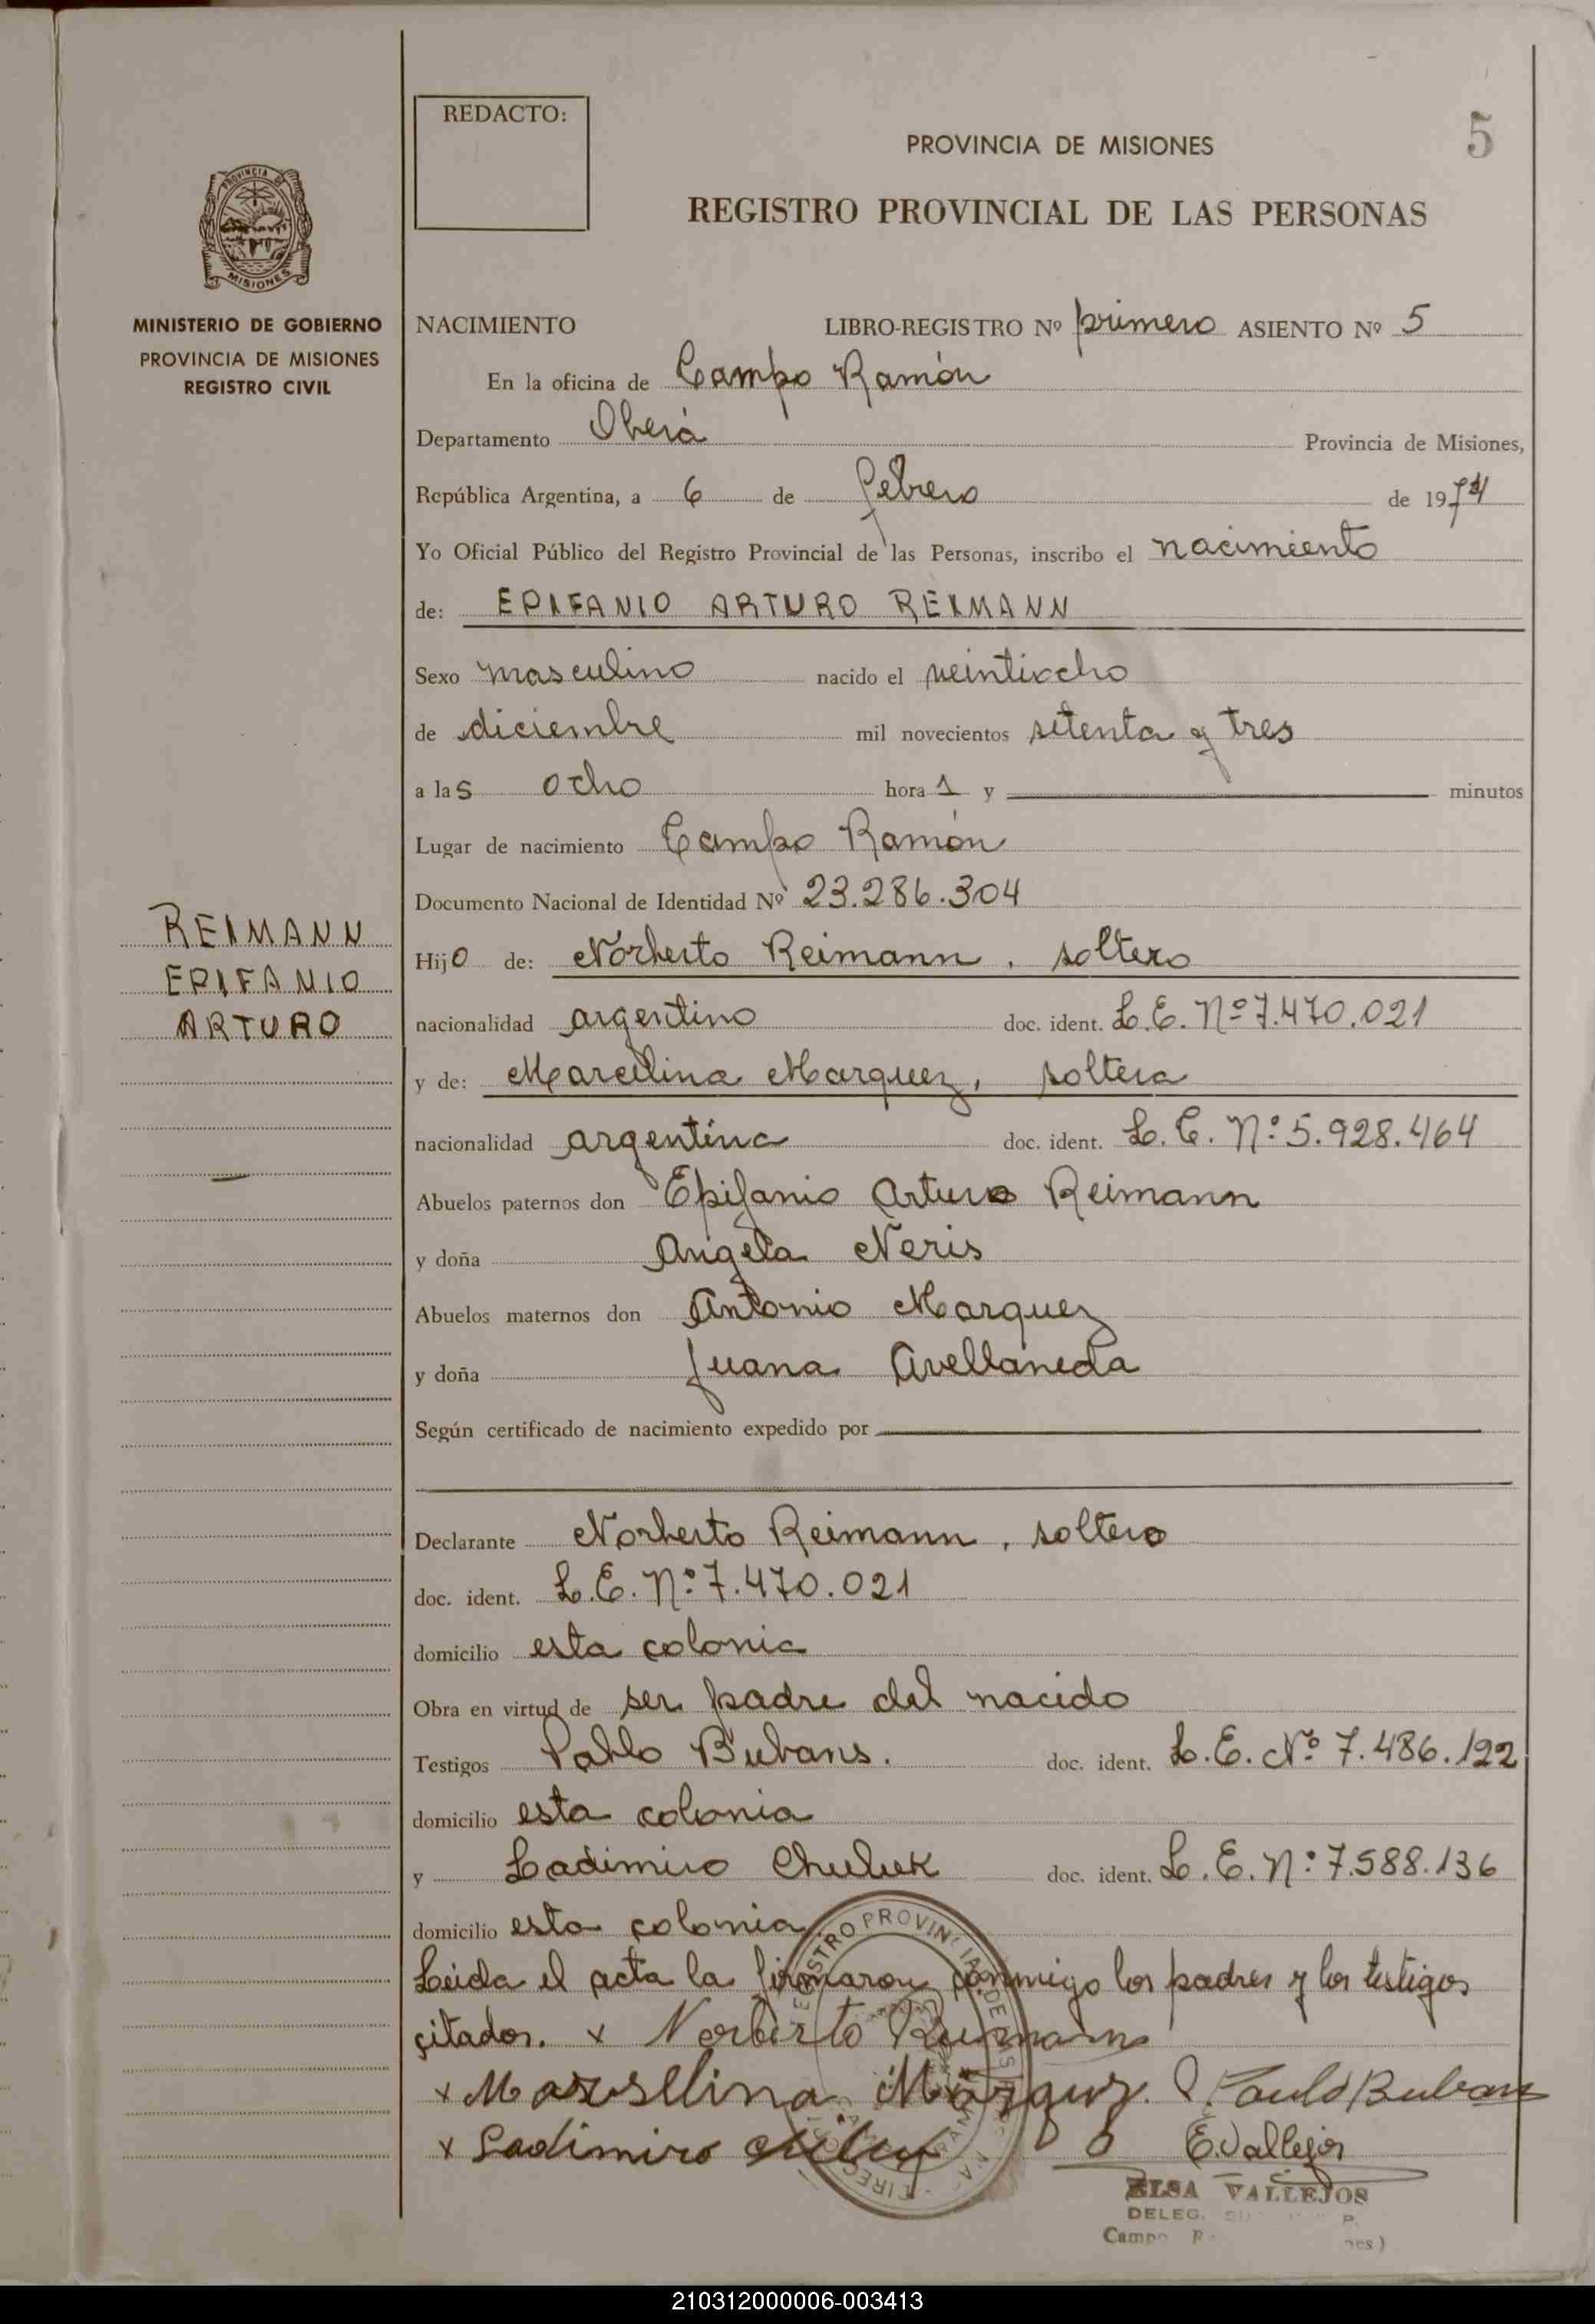 REDACTO:
5
PROVINCIA DE MISIONES
REGISTRO PROVINCIAL DE LAS PERSONAS
PROVINCIA DE
MISIONES
MINISTERIO DE GOBIERNO
PROVINCIA DE MISIONES
REGISTRO CIVIL
NACIMIENTO LIBRO-REGISTRO Nº primero ASIENTO Nº 5
En la oficina de Campo Ramón
Departamento Oberá Provincia de Misiones,
República Argentina, a 6 de febrero de 1974
Yo Oficial Público del Registro Provincial de las Personas, inscribo el nacimiento
de: EPIFANIO ARTURO REIMANN
Sexo masculino nacido el veintiocho
de diciembre mil novecientos setenta y tres
a las ocho hora 1 y minutos
Lugar de nacimiento Campo Ramón
Documento Nacional de Identidad Nº 23.286.304
REIMANN
EPIFANIO
ARTURO
Hijo de: Norberto Reimann, soltero
nacionalidad argentino doc. ident. L.E. Nº 7.470.021
y de: Marcelina Marquez, soltera
nacionalidad argentina doc. ident. L.C. Nº 5.928.464
Abuelos paternos don Epifanio Arturo Reimann
y doña Angela Neris
Abuelos maternos don Antonio Marquez
y doña Juana Avellaneda
Según certificado de nacimiento expedido por
Declarante Norberto Reimann, soltero
doc. ident. L.E. Nº 7.470.021
domicilio esta colonia
Obra en virtud de ser padre del nacido
Testigos Pablo Bubans. doc. ident. L.E. Nº 7.486.122
domicilio esta colonia
y Ladimiro Chuluk doc. ident. L.E. Nº 7.588.136
domicilio esta colonia
Leida el acta la firmaron conmigo los padres y los testigos
citados. x Norberto Reimann
x Marselina Márquz. Paulo Buban
x Ladimiro E. Vallejos
ELSA VALLEJOS
DELEG.
Campo
210312000006-003413